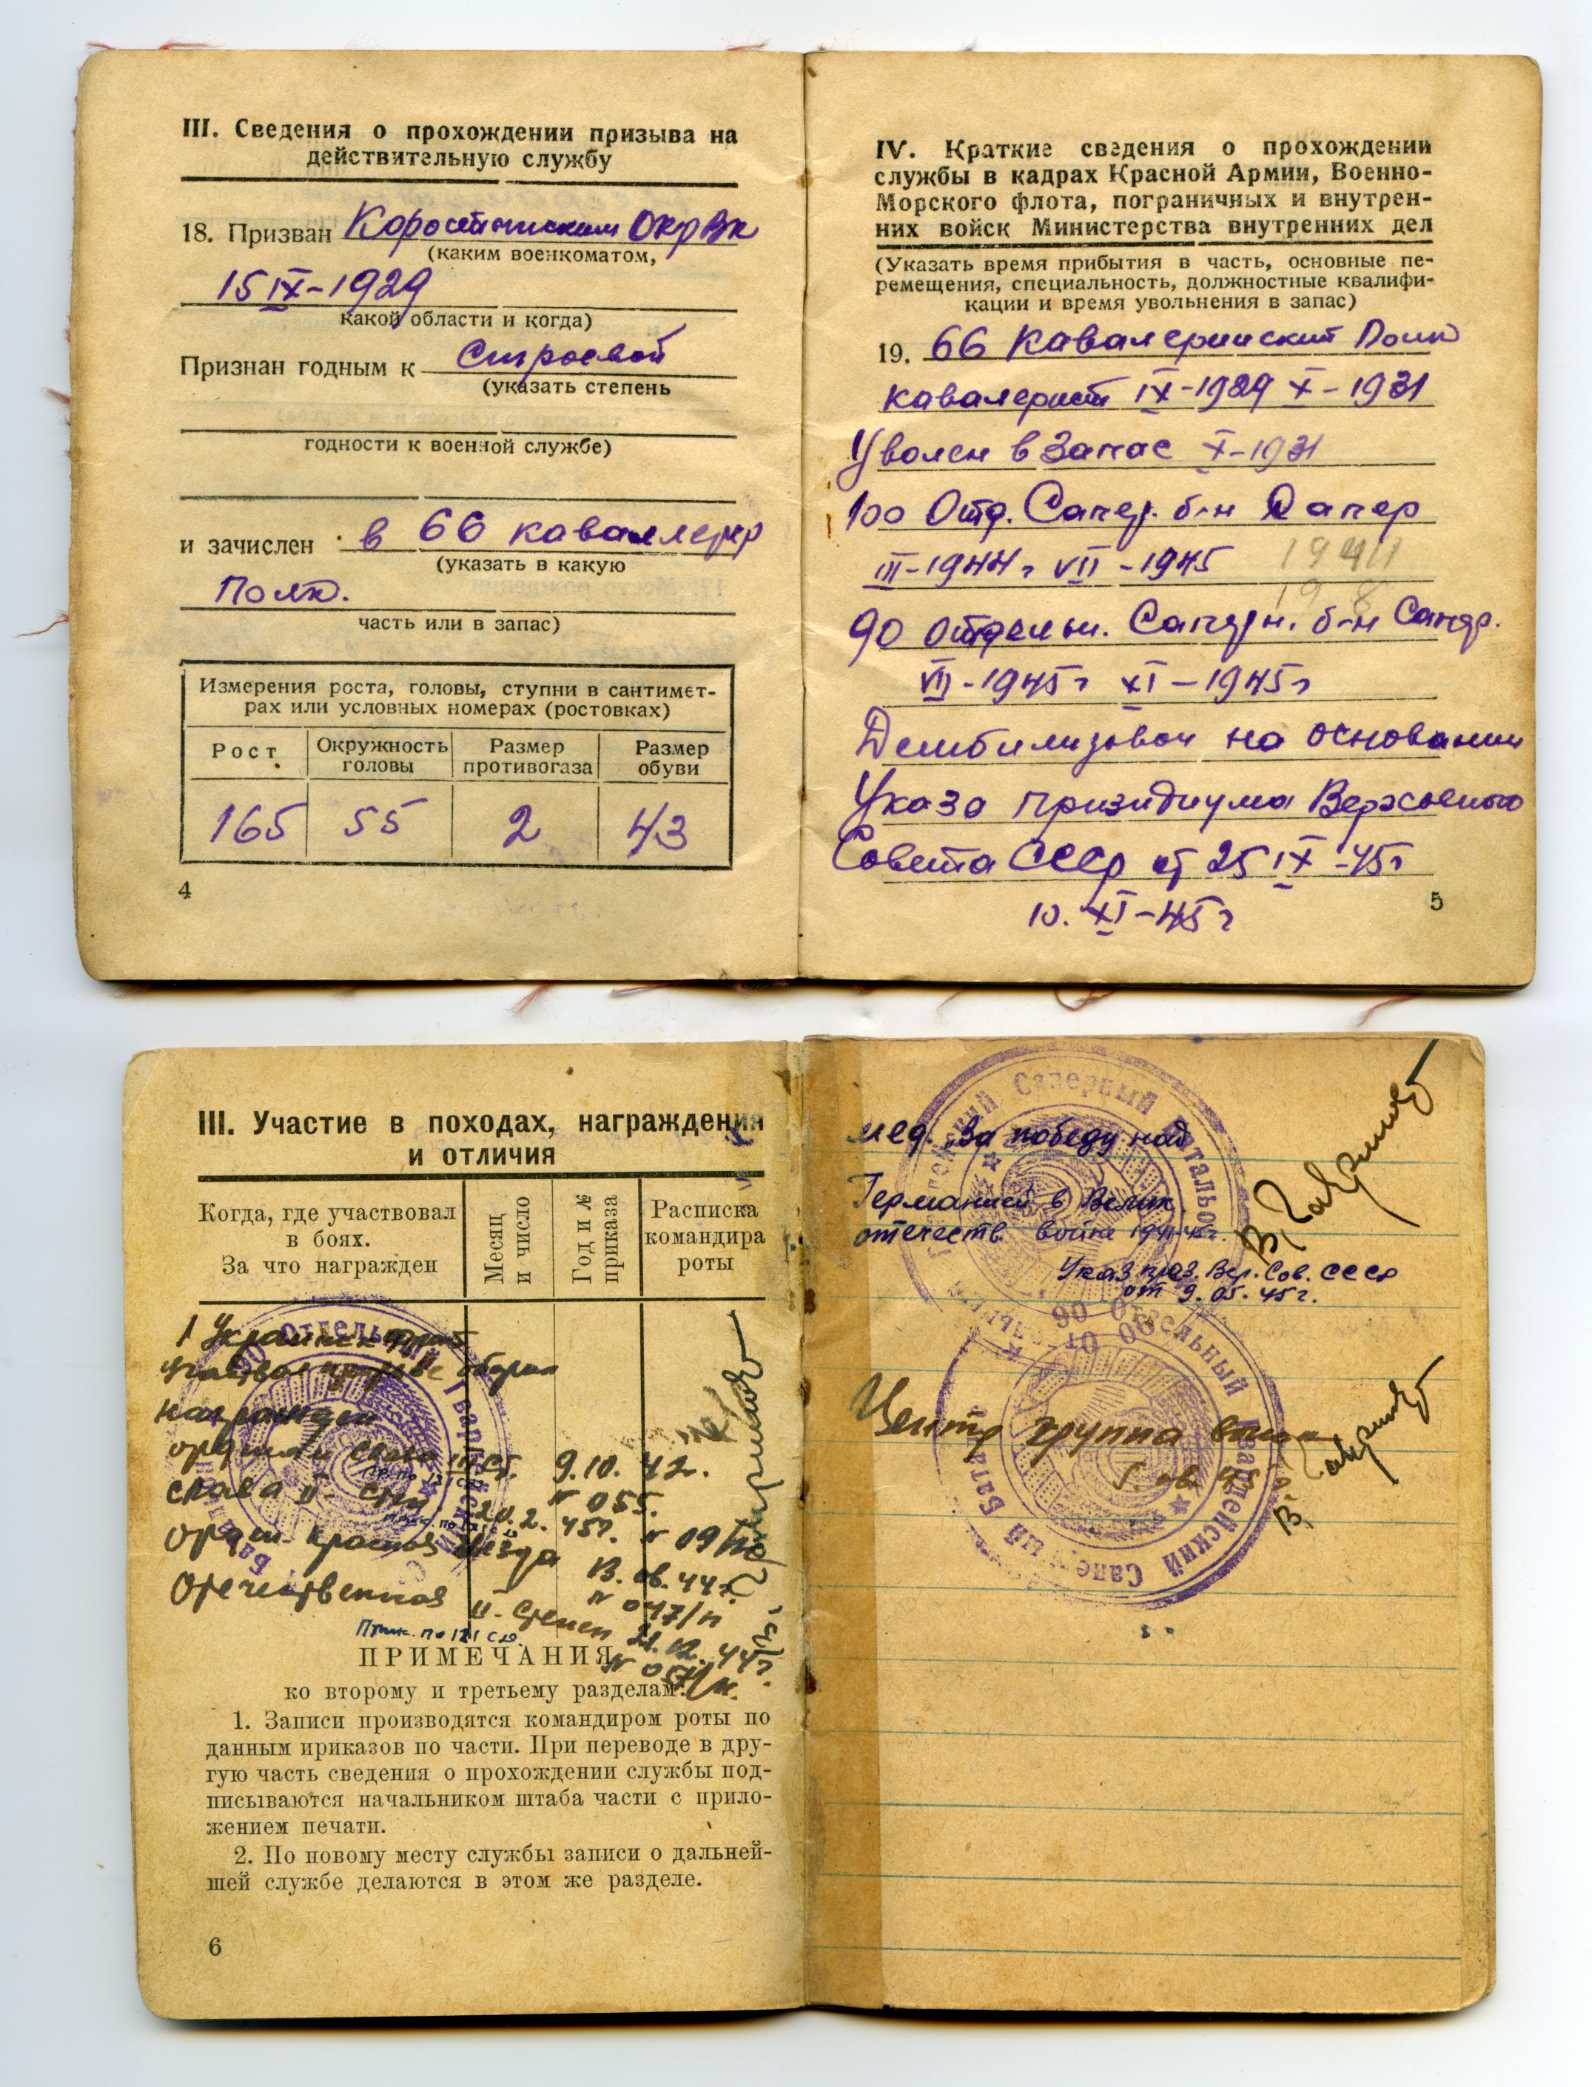 III. Сведения о прохождении призыва на
действительную службу
18. Призван Коростенским ОкрВк
(каким военкоматом,
15 IX-1929
какой области и когда)
Признан годным к Строевой
(указать степень
годности к военной службе)
и зачислен в 66 каваллер
(указать в какую
Полк.
часть или в запас)
Измерения роста, головы, ступни в сантимет-
рах или условных номерах (ростовках)
Рост
Окружность
головы
Размер
противогаза
Размер
обуви
165 55 2 43
4
IV. Краткие сведения о прохождении
службы в кадрах Красной Армии, Военно-
Морского флота, пограничных и внутрен-
них войск Министерства внутренних дел
(Указать время прибытия в часть, основные пе-
ремещения, специальность, должностные квалифи-
кации и время увольнения в запас)
19. 66 Кавалерийский Полк
кавалерист IX-1929 X-1931
Уволен в Запас X-1931
100 Отд. Сапер. б-н Сапер
III-1944г VII-1945
90 отдельн. Саперн. б-н Сапер.
VII-1945г XI-1945г
Демобилизован на основании
Указа призидиума Верховного
Совета СССР от 25 IX-45г
10. XI-45г
5
III. Участие в походах, награждения
и отличия
Когда, где участвовал
в боях.
За что награжден
Месяц
и число
Год и №
приказа
Расписка
командира
роты
1 Украинск фронт
награжден
орденом слава III ст. 9.10.
слава II- степ 20.2. 45г. N 09/н
орден. красная звезда
Отечественная II- степен
ПРИМЕЧАНИЯ
ко второму и третьему разделам.
1. Записи производятся командиром роты по
данным приказов по части. При переводе в дру-
гую часть сведения о прохождении службы под-
писываются начальником штаба части с прило-
жением печати.
2. По новому месту службы записи о дальней-
шей службе делаются в этом же разделе.
6
мед. За победу над
Германией в Велик.
отечеств. войне 1941-45г.
Указ през. Вер. Сов. СССР
от 9. 05. 45г.
Центр группа войск
90 Отдельный Гвардейский Саперный Батальон